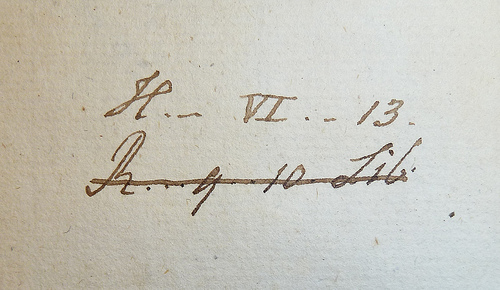 H. - VI. - 13.
R. . 9. 10 Lib.